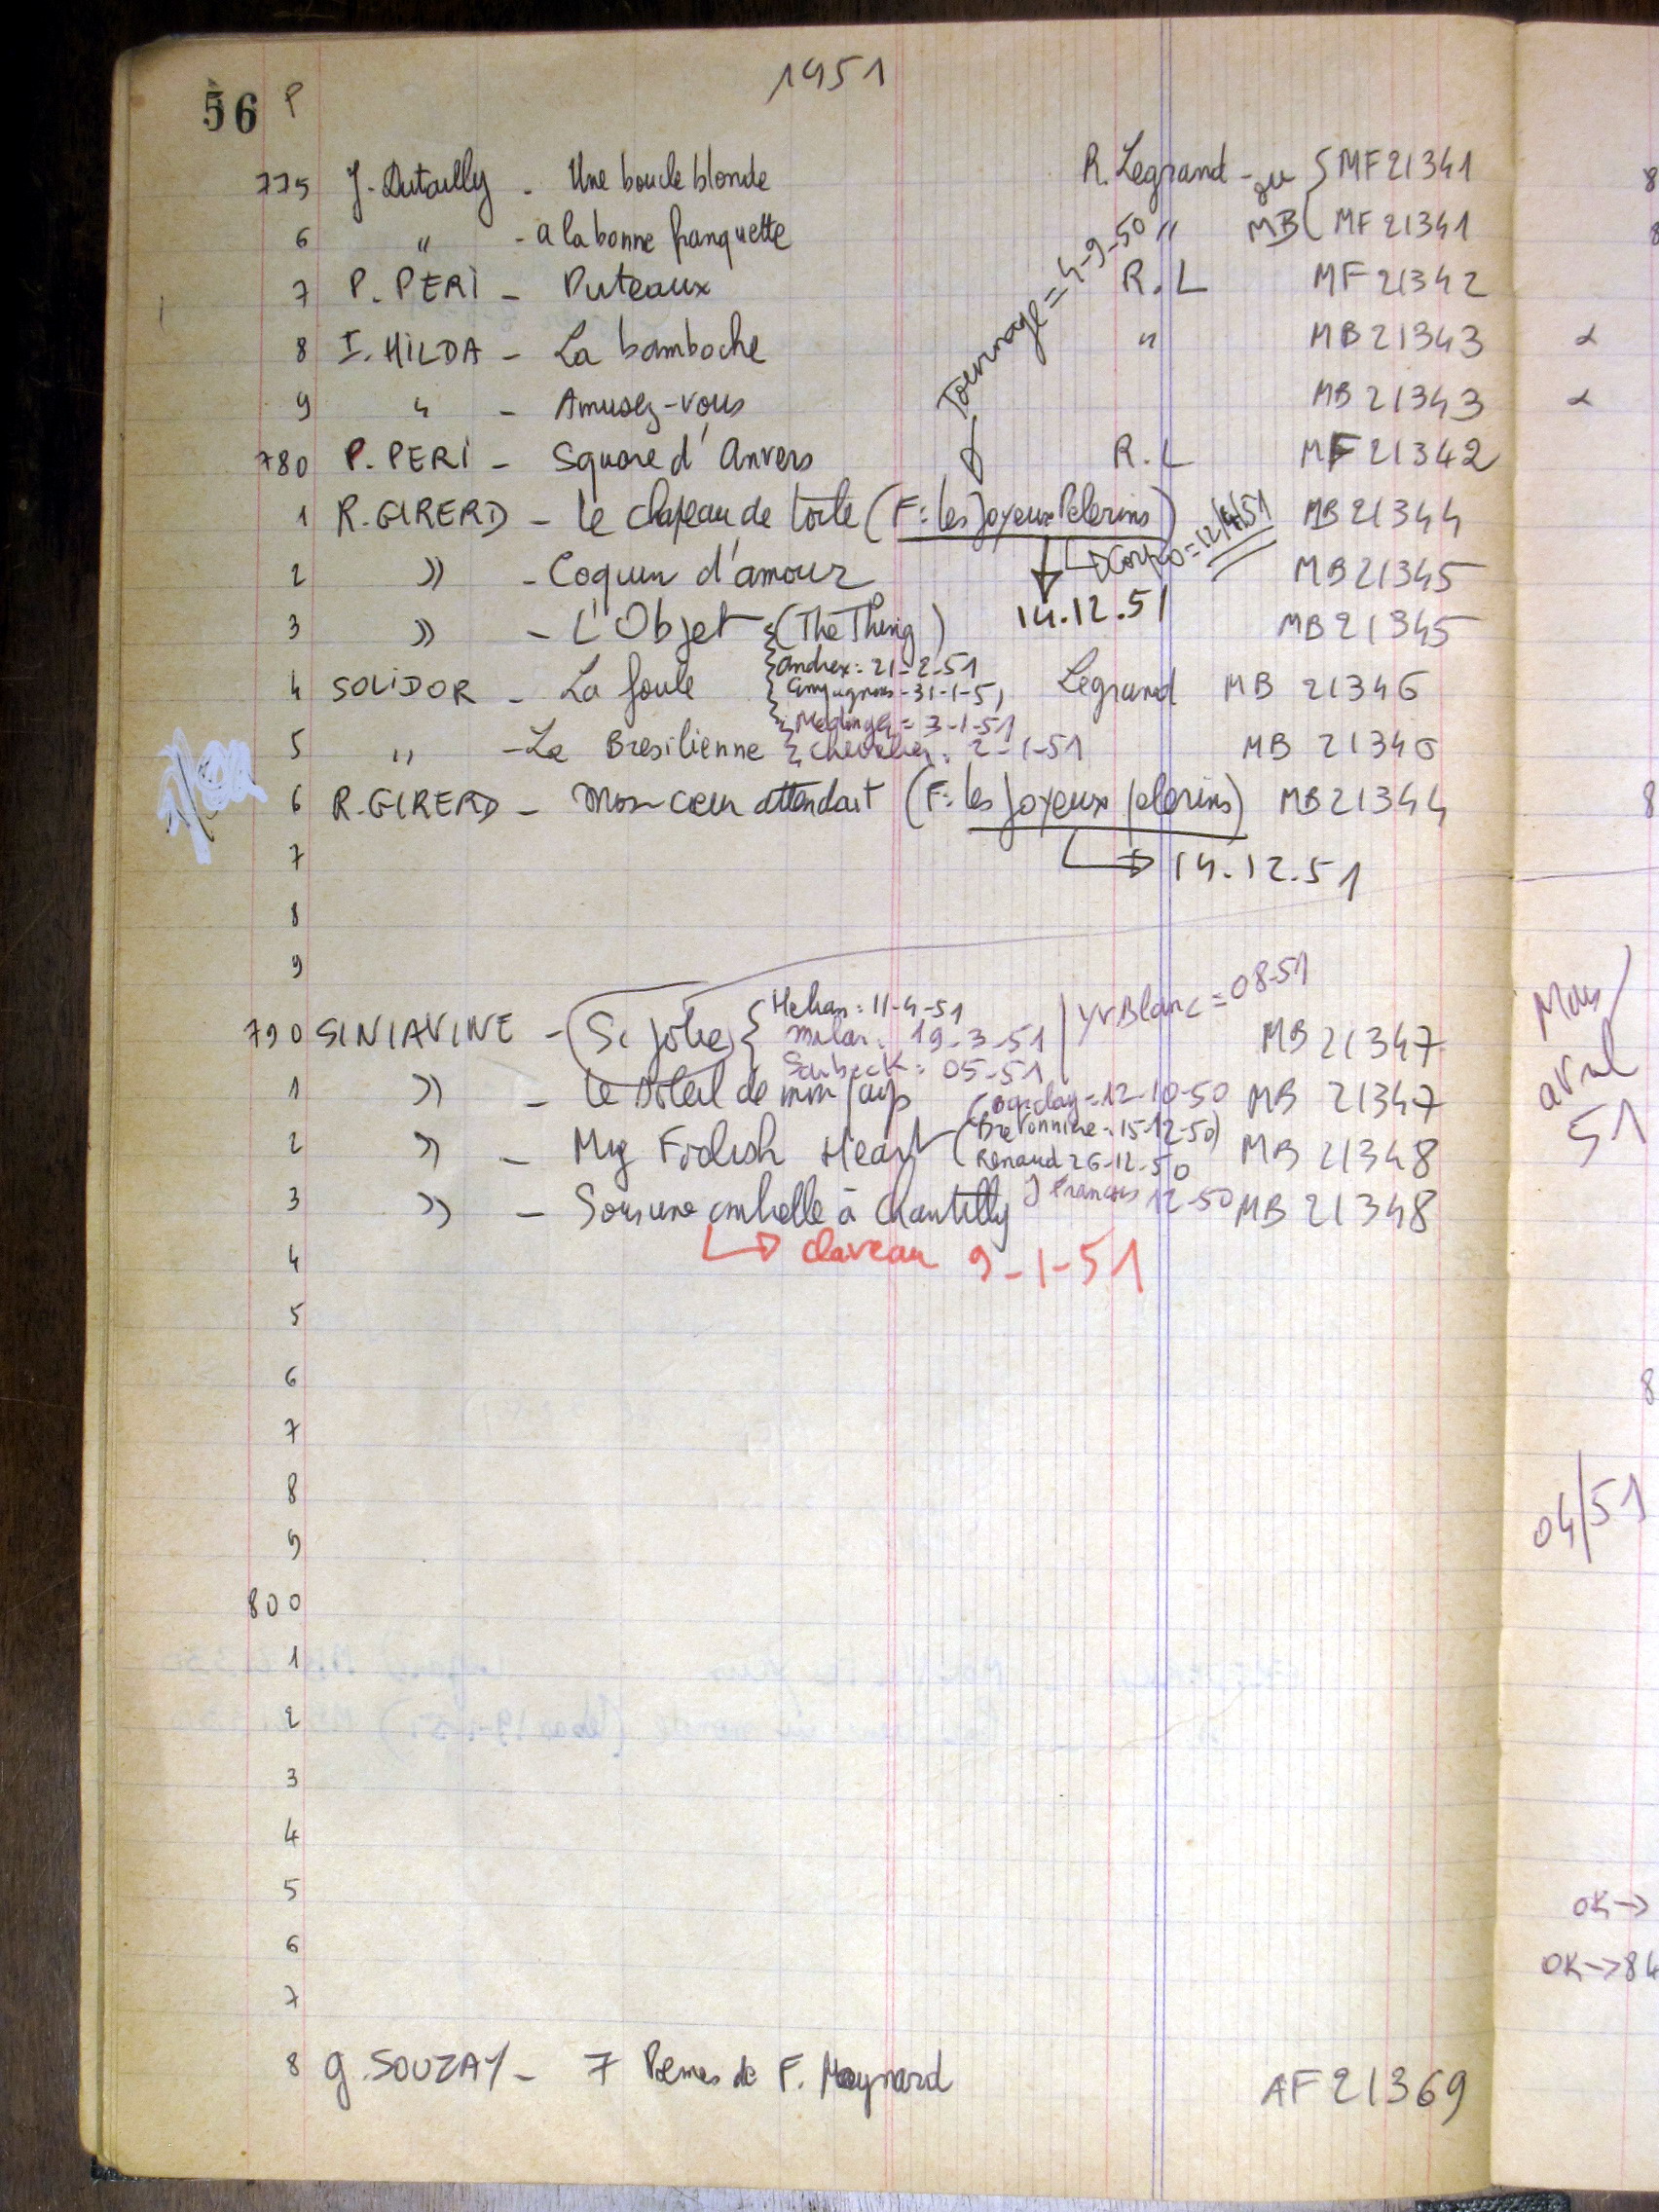 56 P
1951
775 J. Dutailly - Une boucle blonde R. Legrand - ou { MF 21341
6 " - a la bonne franquette " MB { MF 21341
Tournage = 4-9-50
7 P. PERI - Puteaux R.L MF 21342
8 I. HILDA - La bamboche " MB 21343
9 " - Amusez-vous MB 21343
780 P. PERI - Square d'Anvers R.L MF 21342
1 R. GIRERD - Le chapeau de toile (F: les Joyeux Pelerins) MB 21344
= 12/4/51
2 » - Coquin d'amour MB 21345
14.12.51
3 » - L'Objet (The Thing) MB 21345
Andrex: 21-2-51
4 SOLIDOR - La foule Legrand MB 21346
31-1-51
3-1-51
5 " - La Bresilienne MB 21346
Chevalier: 2-1-51
6 R. GIRERD - Mon cœur attendait (F: les Joyeux pelerins) MB 21344
7 → 14.12.51
8
9
Helian: 11-4-51
Yv Blanc = 08-51
790 SINIAVINE - Si jolie MB 21347
19-3-51
05-51
1 » - Le soleil de mon pays MB 21347
Barclay = 12-10-50
15-12-50)
2 » - My Foolish Heart MB 21348
Renaud 26-12-50
J Francois 12-50
3 » - Sous une ombrelle à Chantilly MB 21348
4 → Claveau 9-1-51
5
6
7
8
9
800
1
2
3
4
5
6
7
8 G. SOUZAY - 7 Poemes de F. Maynard AF 21369
8
8
α
α
8
avril
51
8
04/51
OK→
OK→84